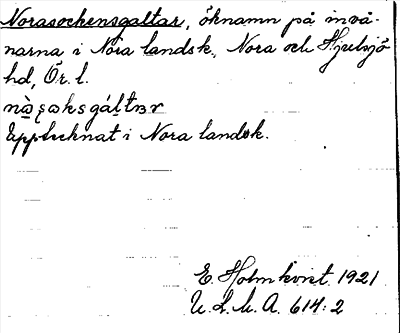 Norasockensgaltar, öknamn på invå-
narna i Nora landsk., Nora och Hjulsjö
hd, Ör. l.
Upptecknat i Nora landsk.
E. Holmkvist 1921
U. L. M. A. 614:2